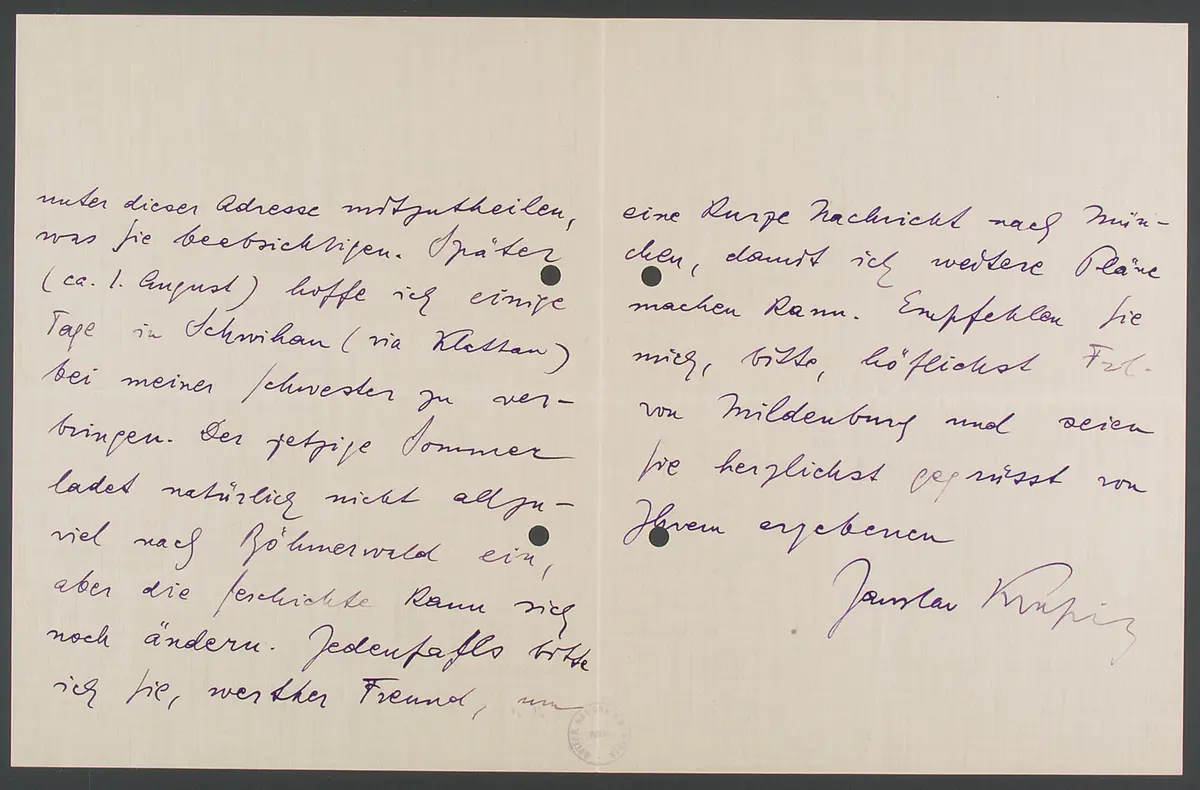 unter dieser Adresse mitzutheilen,
was Sie beebsichtigen. Später
(ca. 1. August) hoffe ich einige
Tage in Schwihau (via Klattau)
bei meiner Schwester zu ver-
bringen. Der jetzige Sommer
ladet natürlich nicht allzu-
viel nach Böhmerwald ein,
aber die Geschichte kann sich
noch ändern. Jedenfalls bitte
ich Sie, werther Freund, um
eine kurze Nachricht nach Mün-
chen, damit ich weitere Pläne
machen kann. Empfehlen Sie
mich, bitte, höflichst Frl.
von Mildenburg und seien
Sie herzlichst gegrüsst von
Ihrem ergebenen
Jaroslav